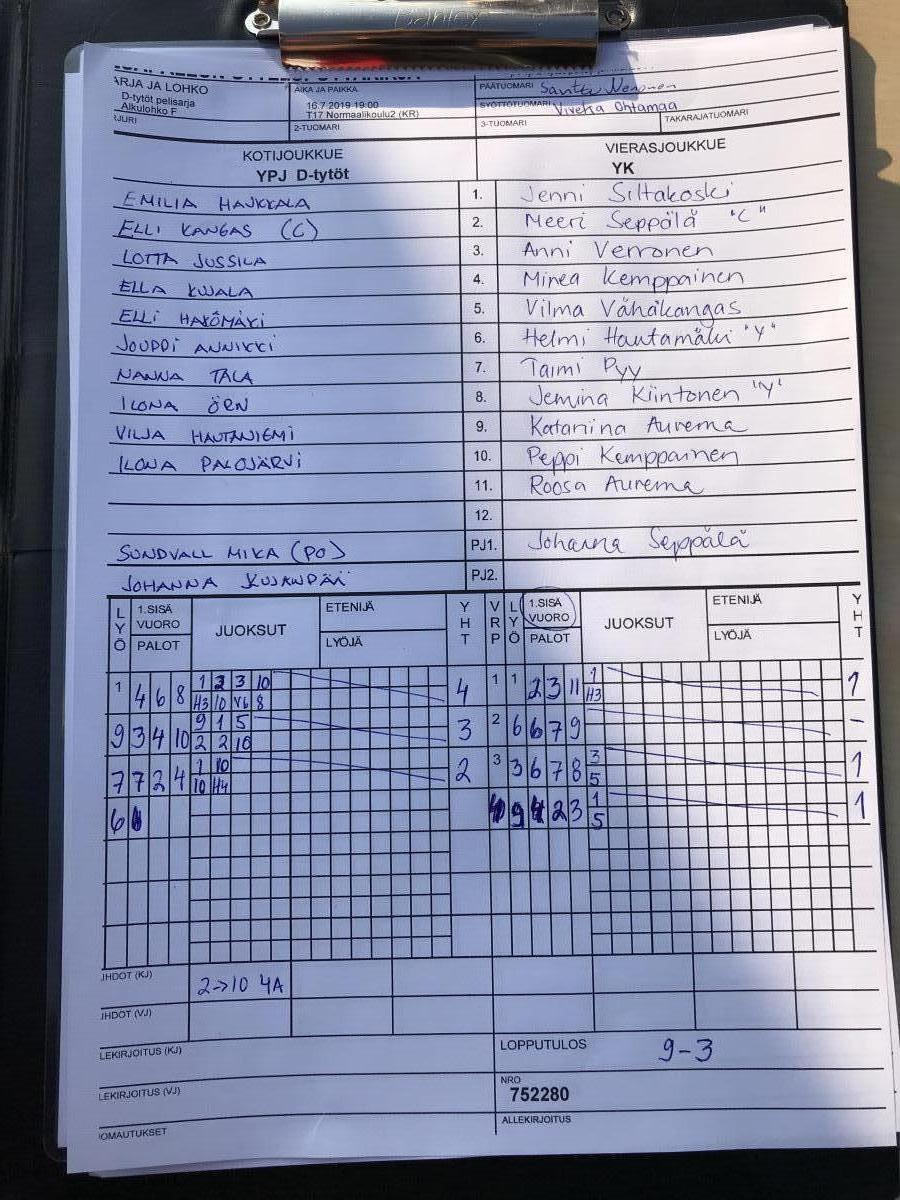 Danley
ARJA JA LOHKO
D-tytöt pelisarja
Alkulohko F
AIKA JA PAIKKA
16.7.2019 19:00
T17 Normaalikoulu2 (KR)
PÄÄTUOMARI Santtu
SYÖTTÖTUOMARI Viveka Ohtamaa
JURI
2-TUOMARI
3-TUOMARI
TAKARAJATUOMARI
KOTIJOUKKUE
YPJ D-tytöt
VIERASJOUKKUE
YK
EMILIA HAUKKALA 1. Jenni Siltakoski
ELLI KANGAS (C) 2. Meeri Seppälä "C"
LOTTA JUSSILA 3. Anni Verronen
ELLA KUJALA 4. Minea Kemppainen
ELLI HAKOMÄKI 5. Vilma Vähäkangas
JOUPPI ANNIKKI 6. Helmi Hautamäki "Y"
NANNA TALA 7. Taimi Pyy
ILONA ÖRN 8. Jemina Kiintonen "Y"
VILJA HAUTANIEMI 9. Katariina Aurema
ILONA PALOJÄRVI 10. Peppi Kemppainen
11. Roosa Aurema
12.
SUNDVALL MIKA (PO) PJ1. Johanna Seppälä
JOHANNA KUJANPÄÄ PJ2.
LYÖ 1.SISÄ VUORO PALOT JUOKSUT ETENIJÄ LYÖJÄ YHT VRP LYÖ 1.SISÄ VUORO PALOT JUOKSUT ETENIJÄ LYÖJÄ YHT
1 4 6 8 1 2 3 10 4 1 1 2 3 11 1 1
H3 10 V6 8 H3
9 3 4 10 9 1 5 3 2 6 6 7 9 -
2 2 10
7 7 2 4 1 10 2 3 3 6 7 8 3 1
10 H4 5
6 9 4 2 3 1 1
5
IHDOT (KJ) 2->10 4A
IHDOT (VJ)
LEKIRJOITUS (KJ)
LOPPUTULOS 9-3
LEKIRJOITUS (VJ)
NRO
752280
IOMAUTUKSET
ALLEKIRJOITUS